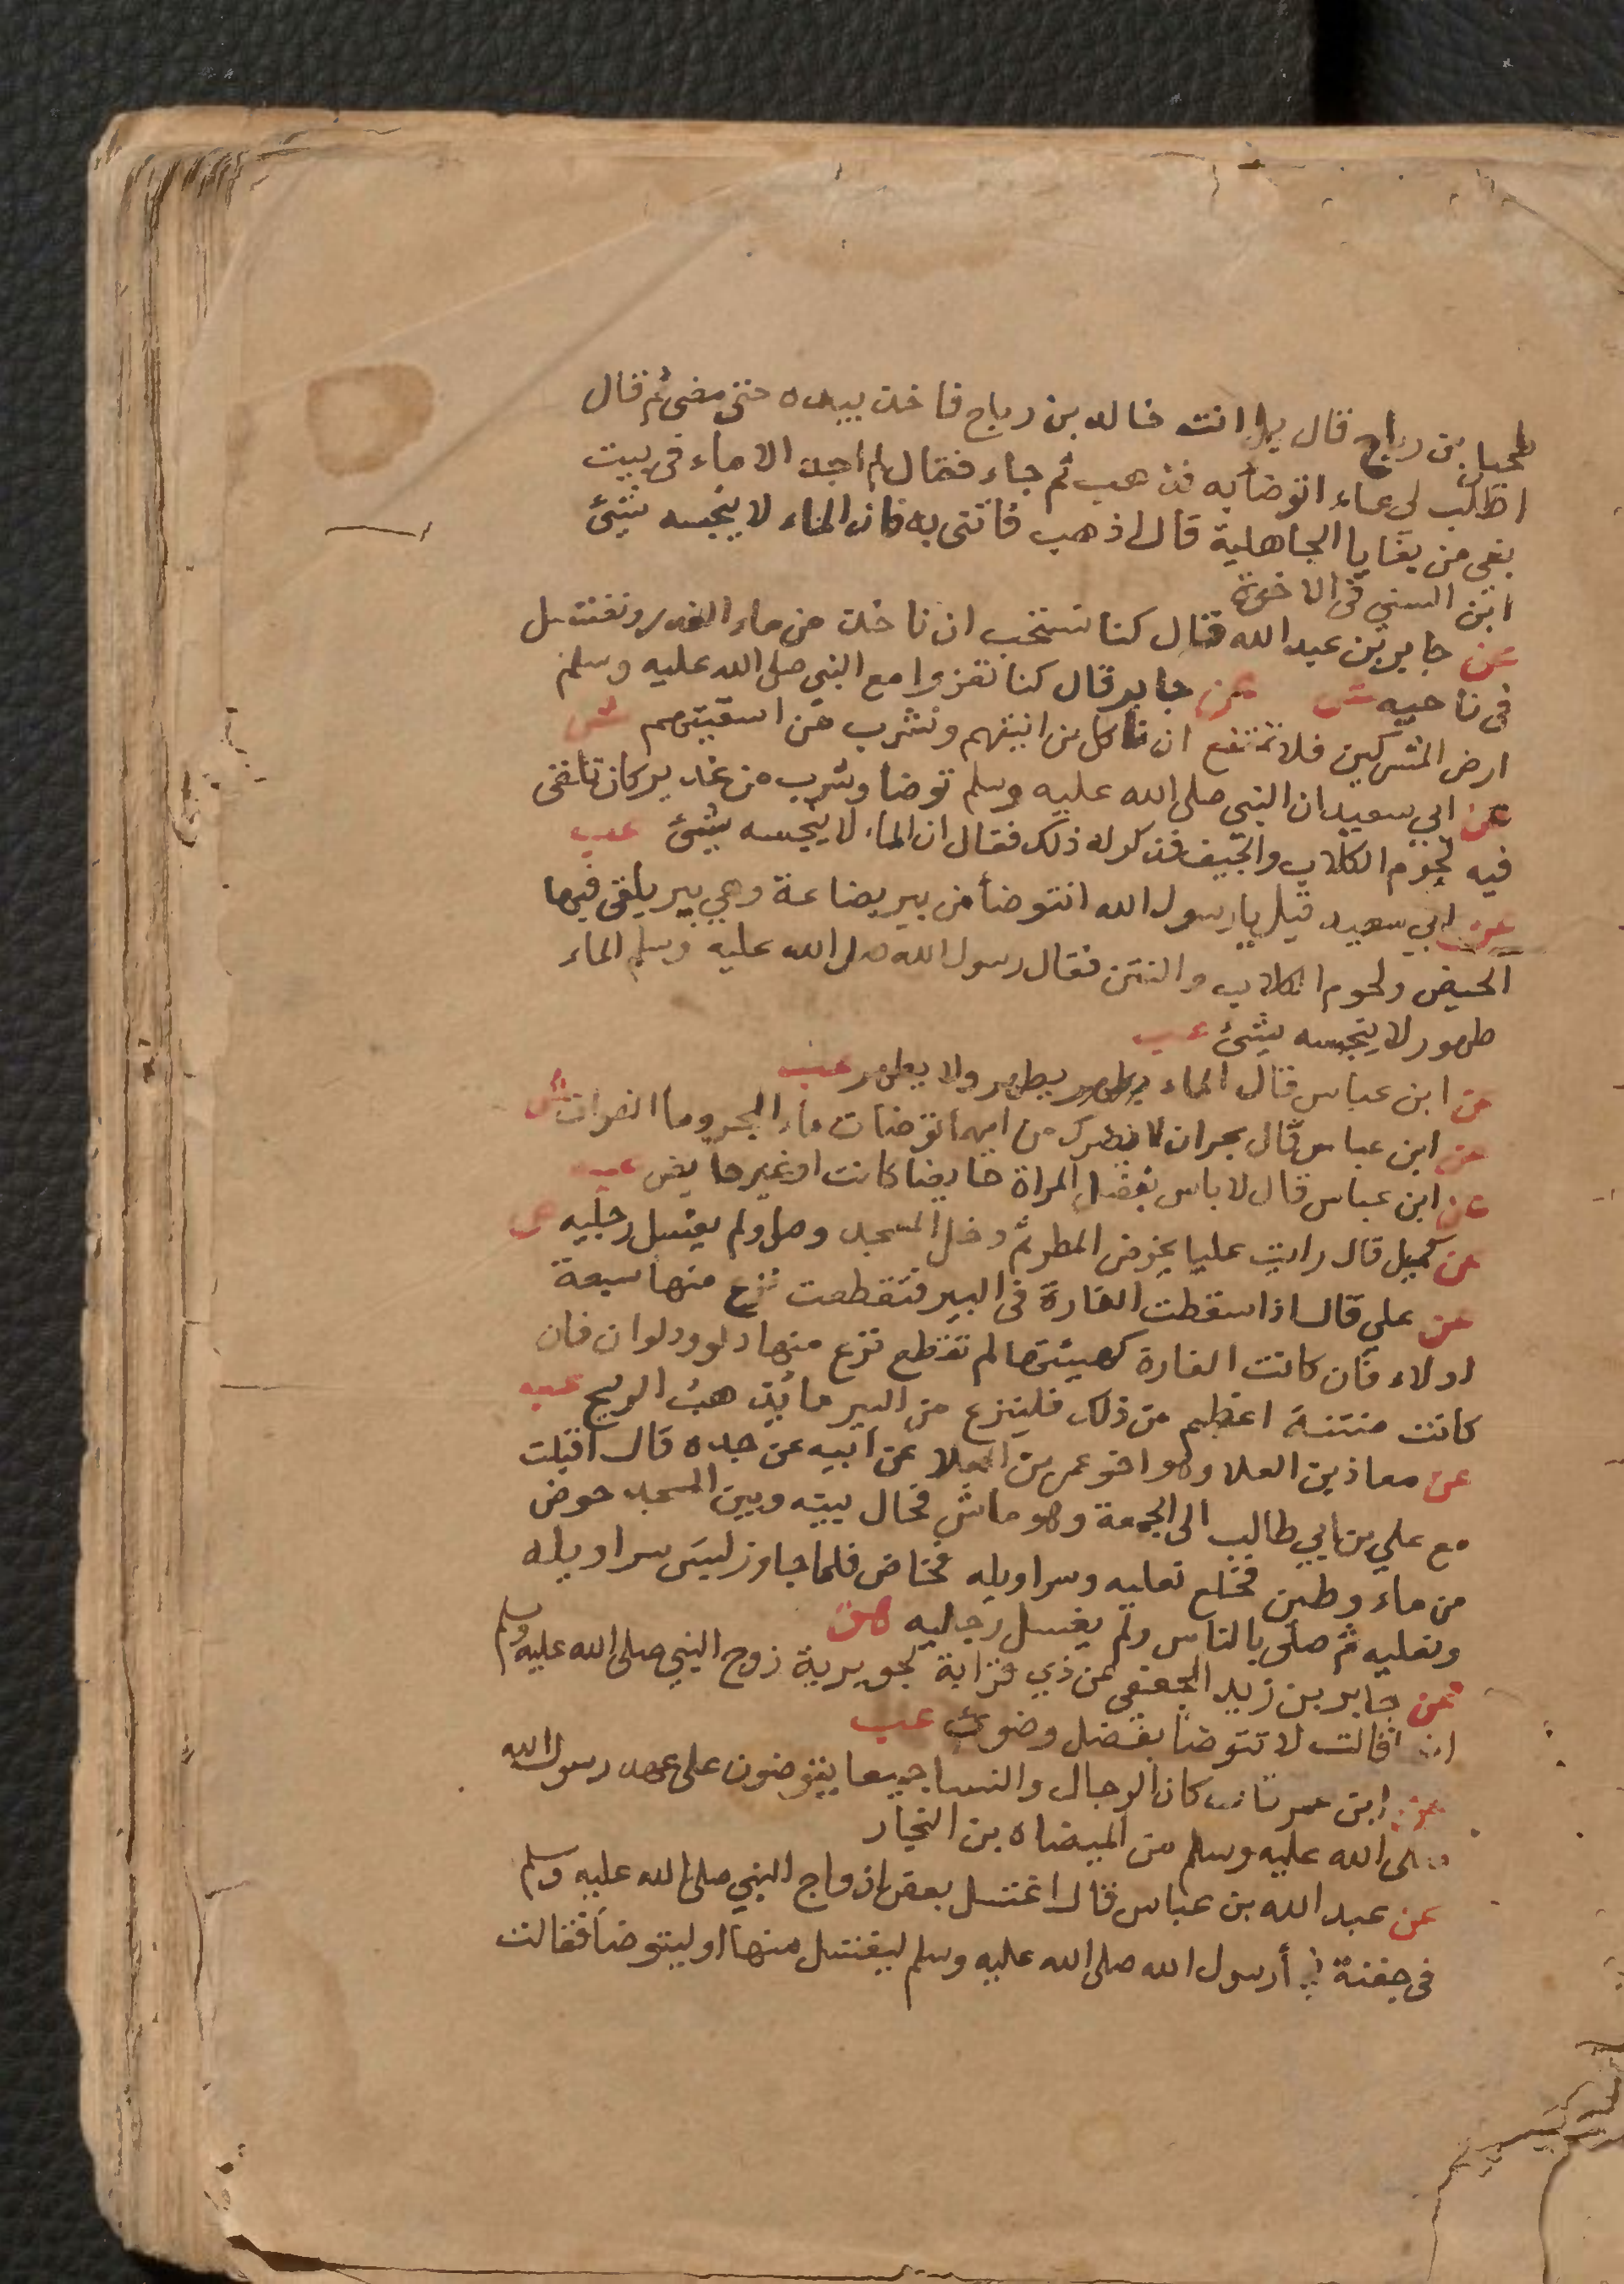 بن رباح قال بل انت خالد بن رباح فاخذ بيده حتى مضى ثم قال
اطلب لى ماء اتوضأ به فذهب ثم جاء فقال لم اجد الا ماء فى بيت
بغى من بغايا الجاهلية قال اذهب فاتنى به فان الماء لا ينجسه شيئ
ابن السنى فى الاخوة
عن جابر بن عبد الله قال كنا نستحب ان ناخذ من ماء الغدير ونغتسل
فى ناحيه ش عن جابر قال كنا نغزوا مع النبى صلى الله عليه وسلم
ارض المشركين فلا نمتنع ان ناكل من انيتهم ونشرب من اسقيتهم ش
عن ابي سعيد ان النبي صلى الله عليه وسلم توضا وشرب من غدير كان تلقى
فيه لحوم الكلاب والجيف فذكر له ذلك فقال ان الماء لا ينجسه شيئ عب
عن ابي سعيد قيل يا رسول الله انتوضأ من بير بضاعة وهي بير يلقى فيها
الحيض ولحوم الكلاب والنتن فقال رسول الله صلى الله عليه وسلم الماء
طهور لا ينجسه شيئ عب
عن ابن عباس قال الماء يطهر ولا يطهر عب
عن ابن عباس قال بحران لا يضرك من ايهما توضات ماء البحر وما الفرات ش
عن ابن عباس قال لا باس بفضل المراة حايضا كانت او غير حايض عب
عن كميل قال رايت عليا يخوض المطر ثم دخل المسجد وصلى ولم يغسل رجليه ص
عن علي قال اذا سقطت الفارة فى البير فتقطعت نزع منها سبعة
ادلاء فان كانت الفارة كهيئتها لم تقطع نزع منها دلو ودلوان فان
كانت منتنة اعظم من ذلك فلينزع من البير ما يذهب الريح عب
عن معاذ بن العلا وهو اخو عمر بن العلا عن ابيه عن جده قال اقبلت
مع علي بن ابي طالب الى الجمعة وهو ماش فحال بينه وبين المسجد حوض
من ماء وطين فخلع نعليه وسراويله فخاض فلما جاوز لبس سراويله
ونعليه ثم صلى بالناس ولم يغسل رجليه هق
عن جابر بن زيد الجعفى عن ذي قرابة لجويرية زوج النبي صلى الله عليه وسلم
قالت لا تتوضأ بفضل وضوئ عب
عن ابن عمر كان الرجال والنسا جميعا يتوضئون على عهد رسول الله
صلى الله عليه وسلم من الميضاه بن النجار
عن عبد الله بن عباس قال اغتسل بعض ازواج النبي صلى الله عليه وسلم
فى جفنة رسول الله صلى الله عليه وسلم ليغتسل منها او ليتوضأ فقالت